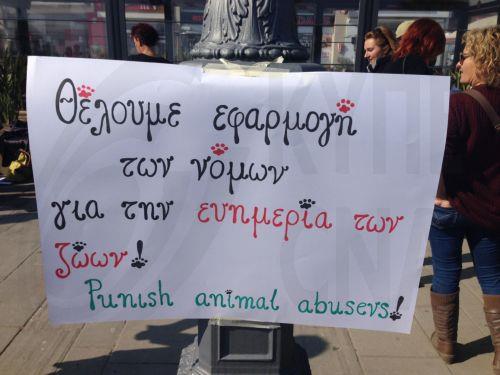 Θέλουμε εφαρμογή
των νόμων
για την ευημερία των
ζώων!
Punish animal abusers!